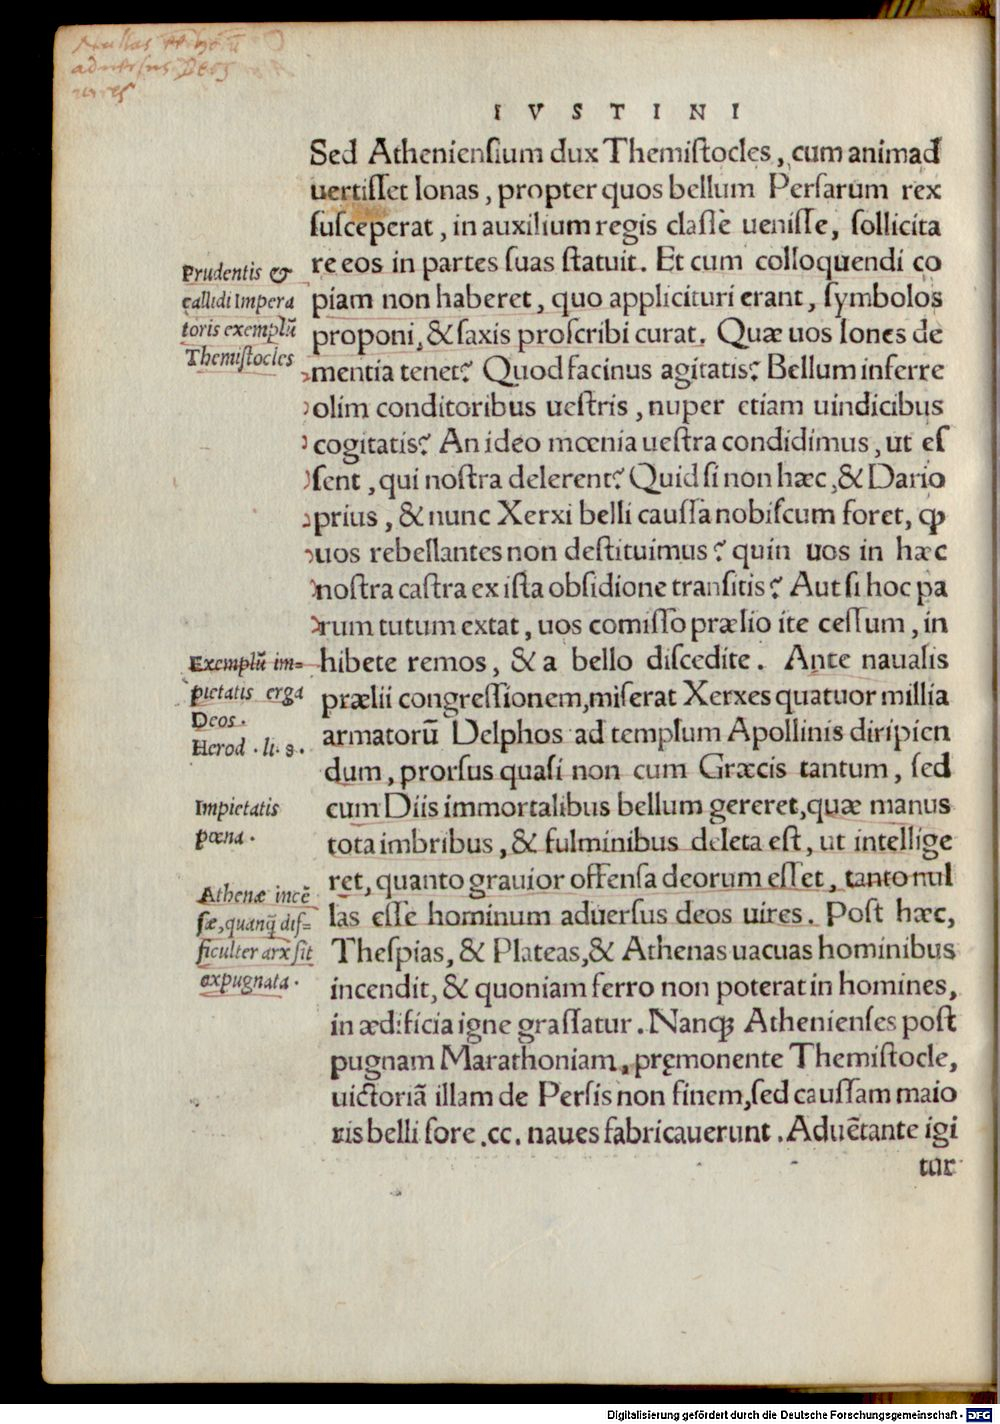 Nullas
aduersus Deos
uires
IVSTINI
Sed Atheniensium dux Themistocles, cum animad
uertisset Ionas, propter quos bellum Persarum rex
susceperat, in auxilium regis classẽ uenisse, sollicita
re eos in partes suas statuit. Et cum colloquendi co
piam non haberet, quo applicituri erant, symbolos
proponi, & saxis proscribi curat. Quæ uos Iones de
mentia tenet? Quod facinus agitatis? Bellum inferre
olim conditoribus uestris, nuper etiam uindicibus
cogitatis? An ideo mœnia uestra condidimus, ut es
sent, qui nostra delerent? Quid si non hæc, & Dario
prius, & nunc Xerxi belli caussa nobiscum foret, ꝙ
uos rebellantes non destituimus? quin uos in hæc
nostra castra ex ista obsidione transitis? Aut si hoc pa
rum tutum extat, uos comisso prælio ite cessum, in
hibete remos, & a bello discedite. Ante naualis
prælii congressionem, miserat Xerxes quatuor millia
armatorũ Delphos ad templum Apollinis diripien
dum, prorsus quasi non cum Græcis tantum, sed
cum Diis immortalibus bellum gereret, quæ manus
tota imbribus, & fulminibus deleta est, ut intellige
ret, quanto grauior offensa deorum esset, tanto nul
las esse hominum aduersus deos uires. Post hæc,
Thespias, & Plateas, & Athenas uacuas hominibus
incendit, & quoniam ferro non poterat in homines,
in ædificia igne grassatur. Nanqꝫ Athenienses post
pugnam Marathoniam, pręmonente Themistocle,
uictoriã illam de Persis non finem, sed caussam maio
ris belli fore .cc. naues fabricauerunt. Aduẽtante igi
tur
Prudentis &
callidi Impera
toris exemplũ
Themistocles
Exemplũ im=
pietatis erga
Deos.
Herod. li. 8.
Impietatis
pœna.
Athenæ incẽ
sæ, quanq̃ dif=
ficulter arx sit
expugnata.
Digitalisierung gefördert durch die Deutsche Forschungsgemeinschaft - DFG